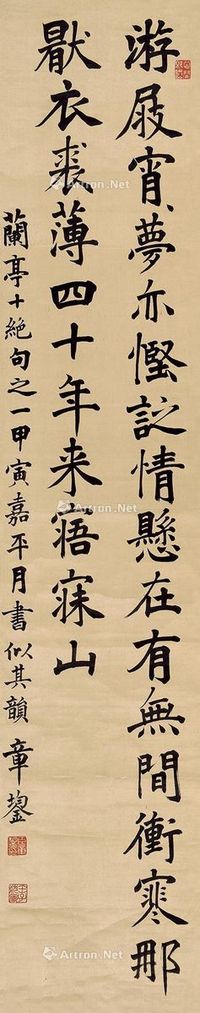 游屐宵〻夢亦慳託情懸在有無間衝寒那
猒衣裘薄四十年来寤寐山
蘭亭十絶句之一甲寅嘉平月書似其韻 章鋆
Artron.Net
Artron.Net
Artron.Net
Artron.Net
Artron.Net